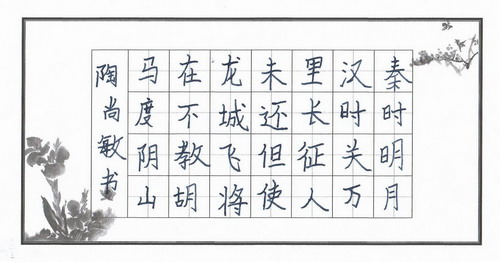 秦时明月
汉时关万
里长征人
未还但使
龙城飞将
在不教胡
马度阴山
陶尚敏书